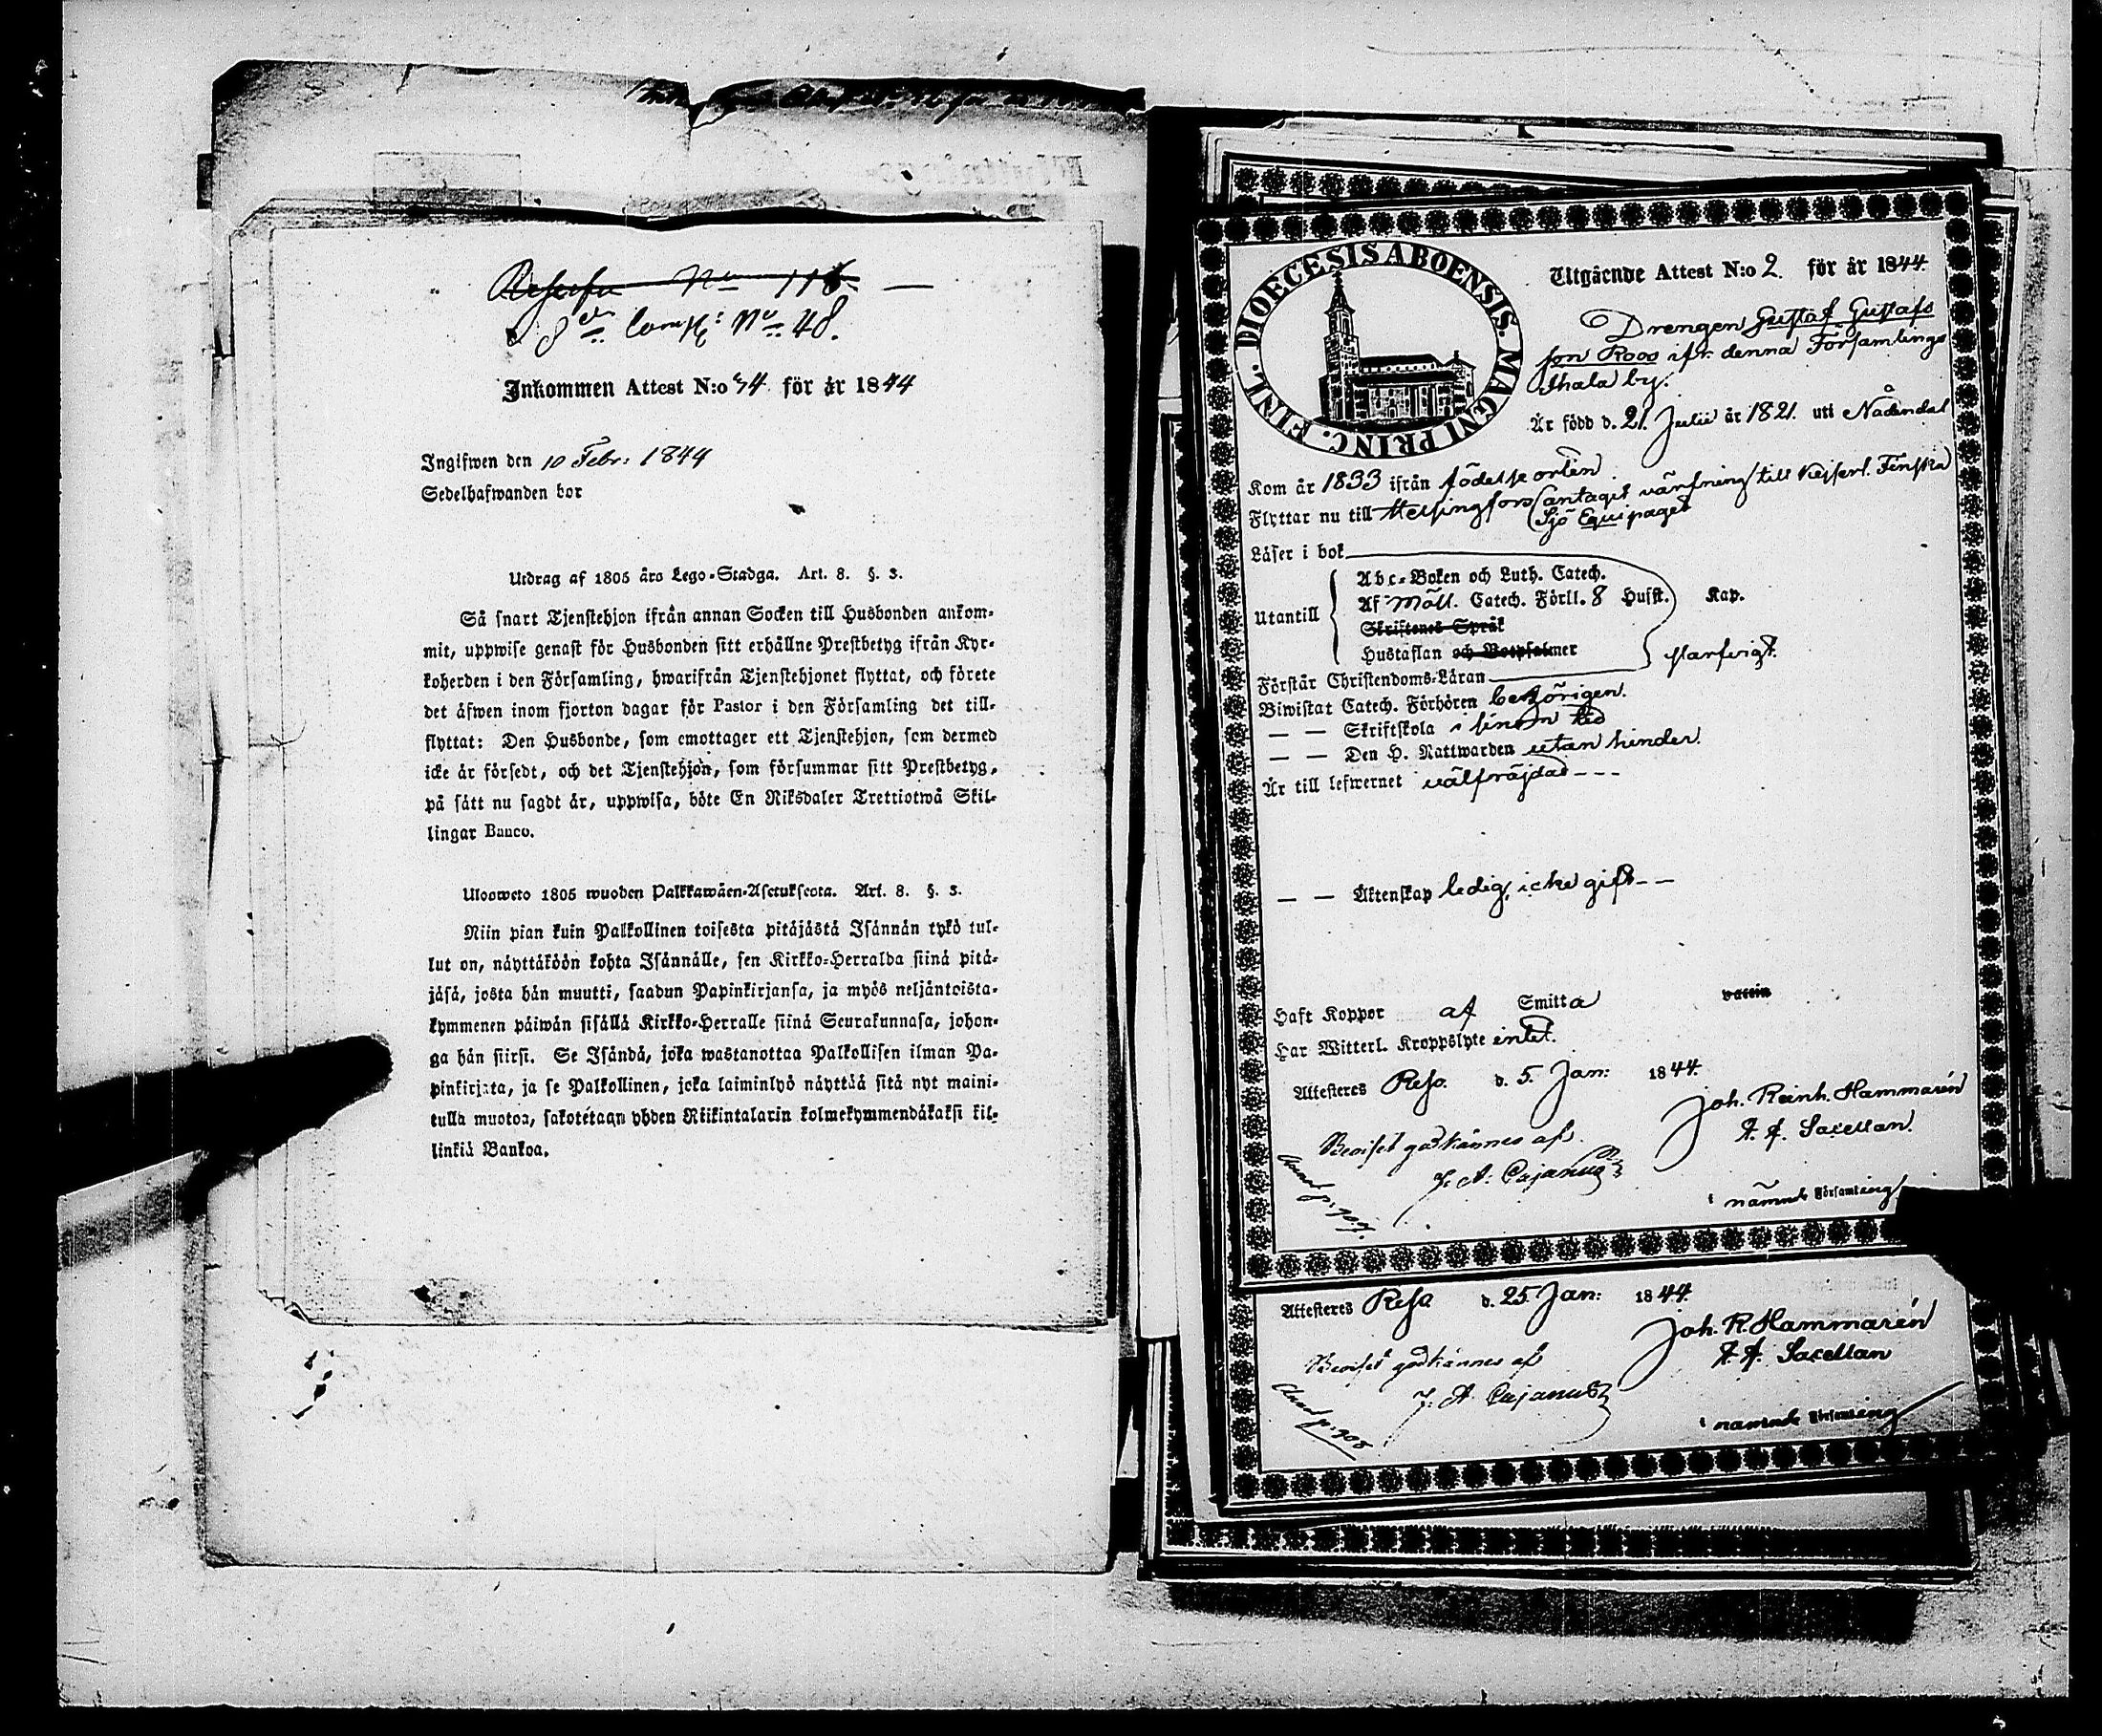 N:o 116.
8de Comp: No 48.
Inkommen Attest N:o 34. för år 1844
Ingifwen den 10 Febr: 1844
Sedelhafwanden bor
Utdrag af 1805 åro Lego-Stadga. Art. 8. §. 3.
Så snart Tjenstehjon ifrån annan Socken till Husbonden ankom-
mit, uppwise genast för Husbonden sitt erhållne Prestbetyg ifrån Kyr-
koherden i den Församling, hwarifrån Tjenstehjonet flyttat, och förete
det åfwen inom fjorton dagar för Pastor i den Församling det till-
flyttat: Den Husbonde, som emottager ett Tjenstehjon, som dermed
icke år försedt, och det Tjenstehjon, som försummar sitt Prestbetyg,
på sått nu sagdt år, uppwisa, böte En Riksdaler Trettiotwå Skil-
lingar Banco.
Ulosweto 1805 wuoden Palkkawåen-Asetuksesta. Art. 8. §. 3.
Niin pian kuin Palkollinen toisesta pitåjåstå Isånnån tykö tul-
lut on, nåyttåköön kohta Isånnålle, sen Kirkko-Herralda siinå pitå-
jåså, josta hån muutti, saadun Papinkirjansa, ja myös neljåntoista-
kymmenen påiwån sisållå Kirkko-Herralle siinå Seurakunnasa, johon-
ga hån siirsi. Se Isåndå, joka wastanottaa Palkollisen ilman Pa-
pinkirjata, ja se Palkollinen, joka laiminlyö nåyttåå sitå nyt maini-
tulla muotoa, sakotetaan yhden Riikintalarin kolmekymmendåkaksi kil-
linkiå Bankoa.
DIOECESIS ABOENSIS. MAGNI PRINC. FINL.
Utgående Attest N:o 2. för år 1844.
Drengen Gustaf Gustafs
son Roos ifr. denna Församlings
Ihala by.
År född d. 21. Julii år 1821. uti Nådendal
Kom år 1833 ifrån födelseorten
Flyttar nu till Helsingfors (antagit värfning till Kejserl. Finska
Sjö Equipaget
Låser i bok
Utantill
Abc-Boken och Luth. Catech.
Af Möll. Catech. Förll. 8 Husst. Kap.
Skriftenes Språk
Hustaflan och Botpsalmer
starfvigt.
Förstår Christendoms-Låran
Biwistat Catech. Förhören behörigen.
— — Skriftskola i sinom tid
— — Den H. Nattwarden utan hinder.
År till lefwernet välfräjdad - - -
— — Åktenskap ledig, icke gift - -
Haft Koppor af Smitta vaccin
Har Witterl. Kroppslyte intet.
Attesteres Reso. d. 5. Jan: 1844.
Joh. Reinh. Hammarén
A. A. Sacellan.
Beviset godkännes af
J. A. Cajanus
i nämnde Församling
Attesteres Reso d. 25 Jan: 1844.
Joh. R. Hammarén
A. A. Sacellan
Beviset godkännes af
J. A. Cajanus
i nämnde Församling